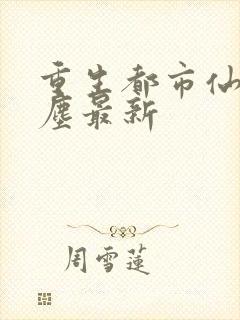 重生都市仙
塵最新
周雪蓮